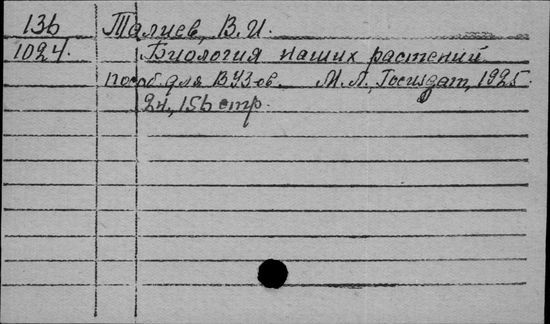 136 Талиев, В. И.
1024. Биология наших растений
пособ. для ВУЗ-ов. М. Л., Госиздат, 1925.
24, 156 стр.